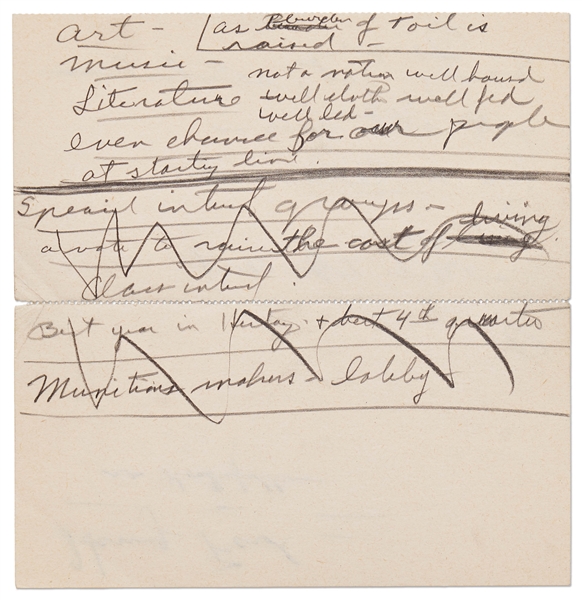 Art - as burden of Toil is
raised -
Music -
not a nation well housed
Literature well cloth well fed
well led -
even chance for our people
at starting line.
Special interest groups -
a vote to raise the cost of living.
Class interest.
Best year in History + best 4th quarter
Munitions makers - lobby -